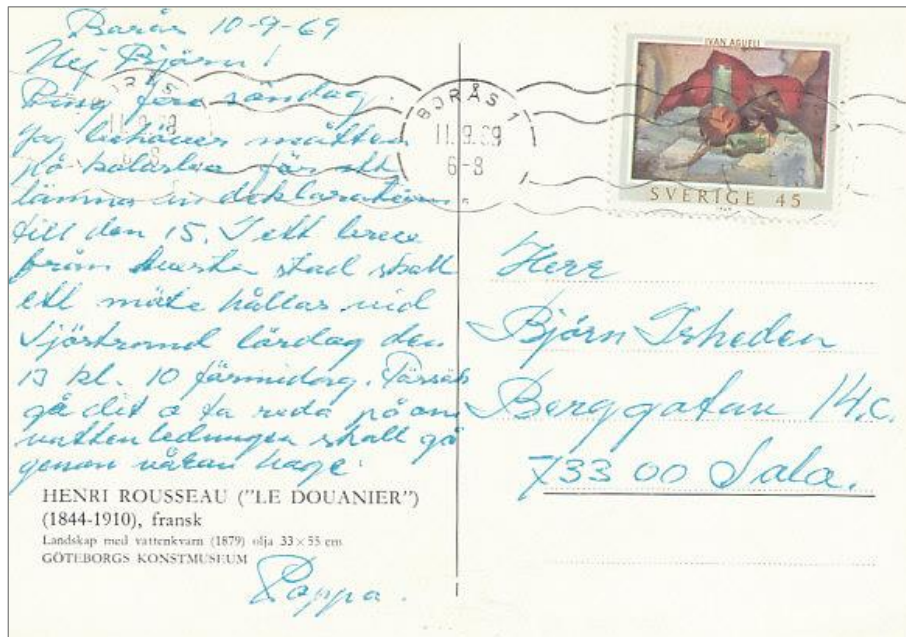 Borås 10-9-69
Hej Björn!
Ring före söndag.
Jag behöver måtten
på kalast för att
lämna in deklaration
till den 15. I ett brev
från stad skall
ett möte hållas vid
Sjöstrand lördag den
13 kl. 10 förmidag. Försök
gå dit o ta reda på om
vattenledningen skall gå
genom våran hage.
HENRI ROUSSEAU ("LE DOUANIER")
(1844-1910), fransk
Landskap med vattenkvarn (1879) olja 33×55 cm
GÖTEBORGS KONSTMUSEUM
Pappa.
BORÅS 1
11.9.69
6-8
IVAN AGUELI
SVERIGE 45
Herr
Björn Isheden
Berggatan 14.C.
733 00 Sala.